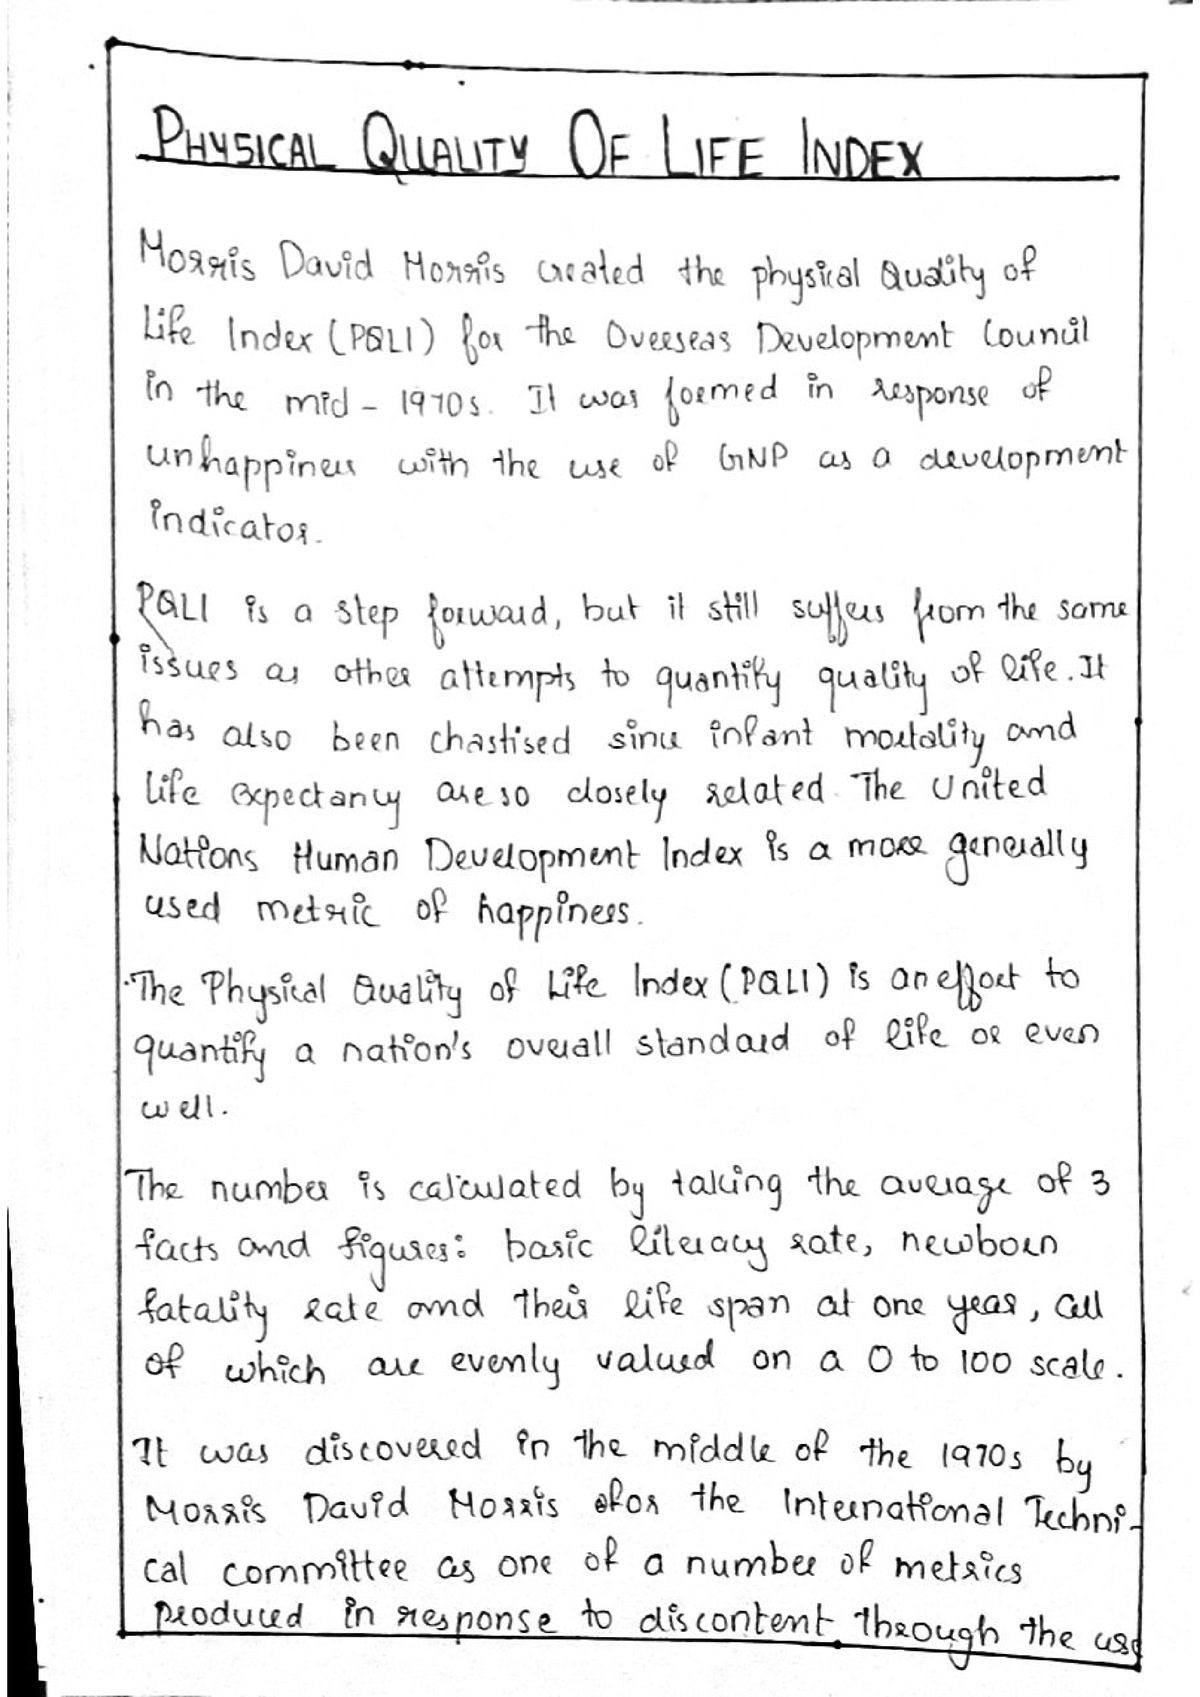 PHYSICAL QUALITY OF LIFE INDEX
Morris David Morris created the physical Quality of
Life Index (PQLI) for the Overseas Development Council
in the mid - 1970s. It was formed in response of
unhappiness with the use of GNP as a development
indicator.
PQLI is a step forward, but it still suffers from the same
issues as other attempts to quantify quality of life. It
has also been chastised since infant mortality and
life expectancy are so closely related. The United
Nations Human Development Index is a more generally
used metric of happiness.
The Physical Quality of Life Index (PQLI) is an effort to
quantify a nation's overall standard of life or even
well.
The number is calculated by taking the average of 3
facts and figures: basic literacy rate, newborn
fatality rate and their life span at one year, all
of which are evenly valued on a 0 to 100 scale.
It was discovered in the middle of the 1970s by
Morris David Morris for the International Techni-
cal committee as one of a number of metrics
produced in response to discontent through the use